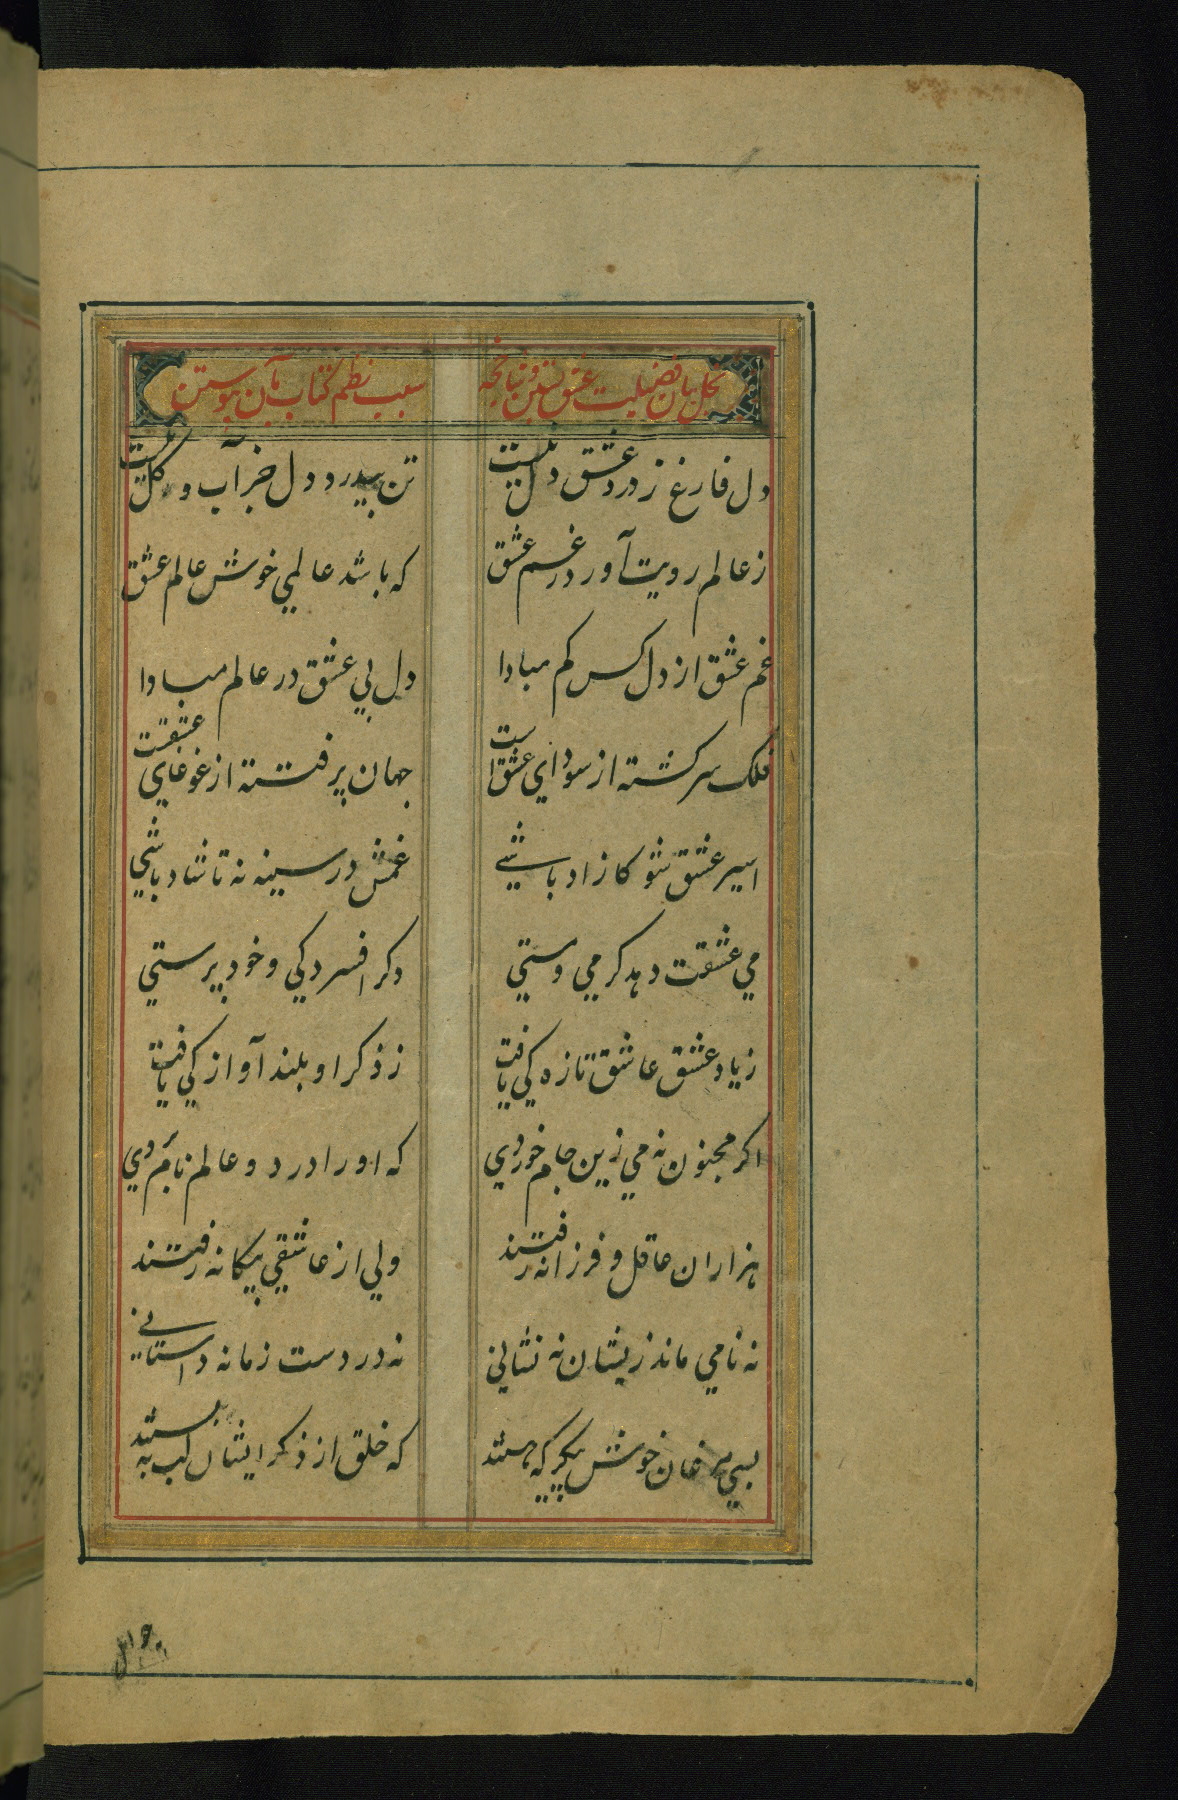 نخل بیان فضیلت عشق بستن و شاخچه سبب نظم کتاب بآن پیوستن
دل فارغ ز درد عشق دل نیست تن بیدرد و دل جز آب و گل نیست
ز عالم رویت آور در غم عشق که باشد عالمی خوش عالم عشق
غم عشق از دل کس کم مبادا دل بی عشق در عالم مبادا
فلک سرگشته از سودای عشق است جهان پر فتنه از غوغای عشقست
اسیر عشق شو کازاد باشی غمش در سینه نه تا شاد باشی
می عشقت دهد گرمی و مستی دگر افسردگی و خودپرستی
ز یاد عشق عاشق تازگی یافت ز ذکر او بلند آوازگی یافت
اگر مجنون نه می زین جام خوردی که او را در دو عالم نام بردی
هزاران عاقل و فرزانه رفتند ولی از عاشقی بیگانه رفتند
نه نامی ماند زیشان نه نشانی نه در دست زمانه داستانی
بسی مرغان خوش پیکر که هستند که خلق از ذکر ایشان لب به بستند